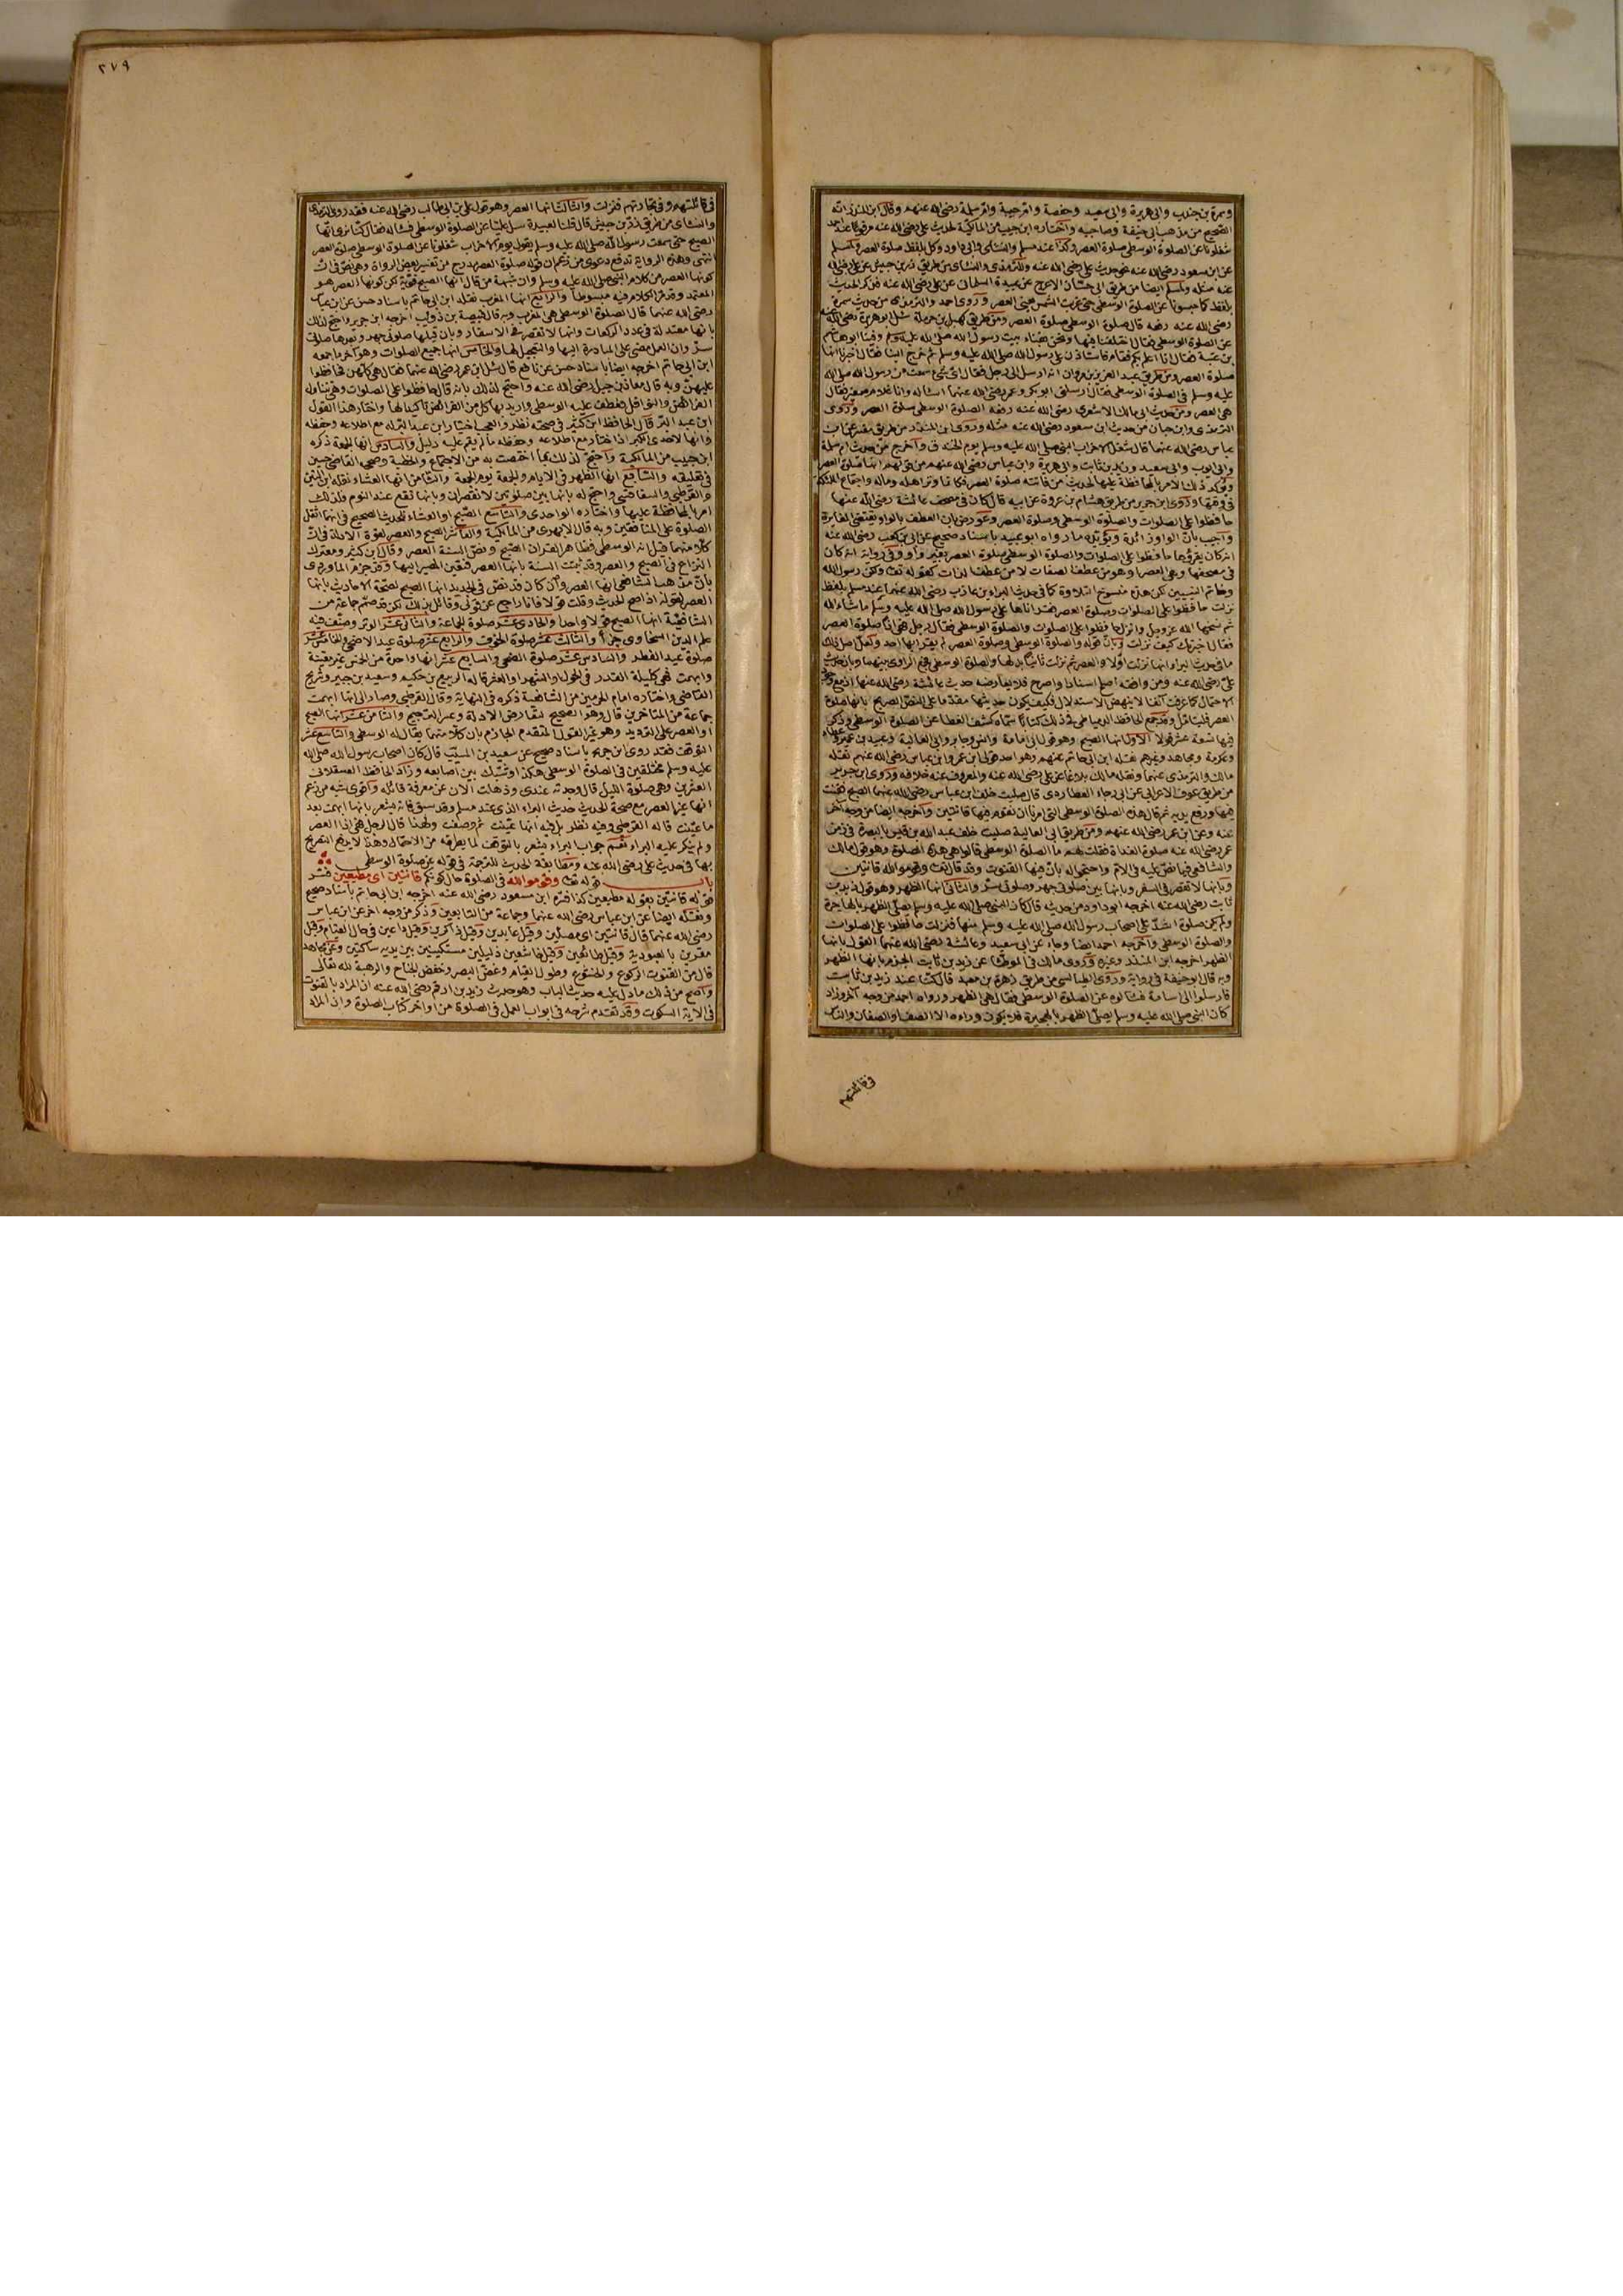 وسمرة بن جندب وابي هريرة وابي سعيد وحفصة وام حبيبة وام سلمة رضي الله عنهم وقال ابن المنذر انه
الصحيح من مذهب ابي حنيفة وصاحبيه واختاره ابن حبيب من المالكية لحديث علي رضي الله عنه مرفوعا عند احمد
شغلونا عن الصلوة الوسطى صلوة العصر وكذا عند مسلم والنسائي وابي داود وكل بلفظ صلوة العصر ولمسلم
عن ابن مسعود رضي الله عنه نحو حديث علي رضي الله عنه وللترمذي والنسائي من طريق زر بن حبيش عن علي رضي الله
عنه مثله ولمسلم ايضا من طريق ابي حسان الاعرج عن عبيدة السلماني عن علي رضي الله عنه فذكر الحديث
بلفظ كما حبسونا عن الصلوة الوسطى حتى غربت الشمس يعني العصر وروى احمد والترمذي من حديث سمرة
رضي الله عنه رفعه قال صلوة الوسطى صلوة العصر ومن طريق كهيل بن حرملة سئل ابو هريرة رضي الله عنه
عن الصلوة الوسطى فقال اختلفنا فيها ونحن بفناء بيت رسول الله صلى الله عليه وسلم وفينا ابو هاشم
بن عتبة فقال انا اعلم لكم فقام فاستأذن على رسول الله صلى الله عليه وسلم ثم خرج الينا فقال اخبرنا انها
صلوة العصر ومن طريق عبد العزيز بن مروان انه ارسل الى رجل فقال اي شئ سمعت من رسول الله صلى الله
عليه وسلم في الصلوة الوسطى فقال ارسلني ابو بكر وعمر رضي الله عنهما اسأله وانا غلام صغير فقال
هي العصر ومن حديث ابي مالك الاشعري رضي الله عنه رفعه الصلوة الوسطى صلوة العصر وروى
الترمذي وابن حبان من حديث ابن مسعود رضي الله عنه مثله وروى ابن المنذر من طريق مقسم عن ابن
عباس رضي الله عنهما قال شغل الاحزاب النبي صلى الله عليه وسلم يوم الخندق واخرج من حديث ام سلمة
وابي ايوب وابي سعيد وزيد بن ثابت وابي هريرة وابن عباس رضي الله عنهم من قولهم انها صلوة العصر
ويؤكد ذلك الامر بالمحافظة عليها لحديث من فاتته صلوة العصر فكانما وتر اهله وماله واجتماع الملائكة
في وقتها وروى ابن جرير من طريق هشام بن عروة عن ابيه قال كان في مصحف عائشة رضي الله عنها
حافظوا على الصلوات والصلوة الوسطى وصلوة العصر وعورض بان العطف بالواو يقتضي المغايرة
واجيب بان الواو زائدة ويؤيده ما رواه ابو عبيد باسناد صحيح عن ابي بن كعب رضي الله عنه
انه كان يقرؤها حافظوا على الصلوات والصلوة الوسطى صلوة العصر بغير واو
وخاتم النبيين لكن هذه منسوخ التلاوة كما في حديث البراء بن عازب رضي الله عنهما عند مسلم بلفظ
نزلت حافظوا على الصلوات وصلوة العصر فقرأناها على رسول الله صلى الله عليه وسلم ما شاء الله
ثم نسخها الله عز وجل وانزل حافظوا على الصلوات والصلوة الوسطى فقال رجل فهي اذا صلوة العصر
فقال اخبرتك كيف نزلت
علي رضي الله عنه ومن وافقه اصح اسنادا واصرح فلا يعارضه حديث عائشة رضي الله عنها
العصر فليتامل وقد جمع الحافظ الدمياطي في ذلك كتابا سماه كشف المغطا عن الصلوة الوسطى وذكر
فيها تسعة عشر قولا الاول انها الصبح وهو قول ابي امامة وانس وجابر وابي العالية وعبيد بن عمير وعطاء
وعكرمة ومجاهد وغيرهم نقله ابن ابي حاتم عنهم وهو احد قولي ابن عمر وابن عباس رضي الله عنهم نقله
مالك والترمذي عنهما ونقله مالك بلاغا عن علي رضي الله عنه والمعروف عنه خلافه وروى ابن جرير
من طريق عوف الاعرابي عن ابي رجاء العطاردي قال صليت خلف ابن عباس رضي الله عنهما الصبح فقنت
فيها ورفع يديه ثم قال هذه الصلوة الوسطى التي امرنا ان نقوم فيها قانتين واخرجه ايضا من وجه آخر
عنه وعن ابن عمر رضي الله عنهم ومن طريق ابي العالية صليت خلف عبد الله بن قيس بالبصرة في زمن
عمر رضي الله عنه صلوة الغداة فقلت لهم ما الصلوة الوسطى قالوا هي هذه الصلوة وهو قول مالك
والشافعي فيما نص عليه في الام واحتجوا له بان فيها القنوت وقد قال تعالى وقوموا لله قانتين
وبانها لا تقصر في السفر وبانها بين صلوتي جهر وصلوتي سر والثاني انها الظهر وهو قول زيد بن
ثابت رضي الله عنه اخرجه ابو داود من حديثه قال كان النبي صلى الله عليه وسلم يصلي الظهر بالهاجرة
ولم تكن صلوة اشد على اصحاب رسول الله صلى الله عليه وسلم منها فنزلت حافظوا على الصلوات
والصلوة الوسطى واخرجه احمد ايضا وجاء عن ابي سعيد وعائشة رضي الله عنهما القول بانها
الظهر اخرجه ابن المنذر وغيره وروى مالك في الموطأ عن زيد بن ثابت الجزم بانها الظهر
وبه قال ابو حنيفة في رواية وروى الطيالسي من طريق زهرة بن معبد قال كنا عند زيد بن ثابت
فارسلوا الى اسامة فسألوه عن الصلوة الوسطى فقال هي الظهر ورواه احمد من وجه آخر وزاد
كان النبي صلى الله عليه وسلم يصلي الظهر بالهجيرة فلا يكون وراءه الا الصف او الصفان والناس
في قائلتهم
٢٧٩
في قائلتهم وفي تجارتهم فنزلت والثالث انها العصر وهو قول علي بن ابي طالب رضي الله عنه فقد روى الترمذي
والنسائي من طريق زر بن حبيش قال قلنا لعبيدة سل عليا عن الصلوة الوسطى فسأله فقال كنا نرى انها
الصبح حتى سمعت رسول الله صلى الله عليه وسلم يقول يوم الاحزاب شغلونا عن الصلوة الوسطى صلوة العصر
انتهى وهذه الرواية تدفع دعوى من زعم ان قوله صلوة العصر مدرج من تفسير بعض الرواة وهي نص في ان
كونها العصر من كلام النبي صلى الله عليه وسلم وان شبهة من قال انها الصبح قوية لكن كونها العصر هو
المعتمد وقد مر الكلام فيه مبسوطا والرابع انها المغرب نقله ابن ابي حاتم باسناد حسن عن ابن عباس
رضي الله عنهما قال الصلوة الوسطى هي المغرب وبه قال قبيصة بن ذؤيب اخرجه ابن جرير واحتج لذلك
بانها معتدلة في عدد الركعات وانها لا تقصر في الاسفار وبان قبلها صلوتي جهر وبعدها صلوتي
سر وان العمل مضى على المبادرة اليها والتعجيل لها والخامس انها جميع الصلوات وهو آخر ما جمعه
ابن ابي حاتم اخرجه ايضا باسناد حسن عن نافع قال سئل ابن عمر رضي الله عنهما فقال هي كلهن فحافظوا
عليهن وبه قال معاذ بن جبل رضي الله عنه واحتج لذلك بان قوله حافظوا على الصلوات وهي تتناول
الفرائض والنوافل فعطف عليه الوسطى واريد بها كل من الفرائض تأكيدا لها واختار هذا القول
ابن عبد البر قال الحافظ ابن كثير في صحته نظر والعجب اختيار ابن عبد البر له مع اطلاعه وحفظه
وانها لاحدى الكبر اذا اختار مع اطلاعه وحفظه ما لم يقم عليه دليل والسادس انها الجمعة ذكره
ابن حبيب من المالكية واحتج لذلك بما اختصت به من الاجتماع والخطبة وصححه القاضي حسين
في تعليقه والسابع انها الظهر في الايام والجمعة يوم الجمعة والثامن انها العشاء نقله ابن التين
والقرطبي والسفاقسي واحتج له بانها بين صلوتين لا تقصران وبانها تقع عند النوم فلذلك
امر بالمحافظة عليها واختاره الواحدي والتاسع الصبح او العشاء للحديث الصحيح في انهما اثقل
الصلوة على المنافقين وبه قال الابهري من المالكية والعاشر الصبح والعصر لقوة الادلة في ان
كلا منهما قيل انه الوسطى فظاهر القرآن الصبح ونص السنة العصر وقال ابن كثير ومعترك
النزاع في الصبح والعصر وقد ثبتت السنة بانها العصر فتعين المصير اليها وقد جزم الماوردي
بان مذهب الشافعي انها العصر وان كان قد نص في الجديد انها الصبح لصحة الاحاديث بانها
العصر لقوله اذا صح الحديث وقلت قولا فانا راجع عن قولي وقائل بذلك لكن قد صمم جماعة من
الشافعية انها الصبح قولا واحدا والحادي عشر صلوة الجماعة والثاني عشر الوتر وصنف فيه
علم الدين السخاوي جزءا والثالث عشر صلوة الخوف والرابع عشر صلوة عيد الاضحى والخامس عشر
صلوة عيد الفطر والسادس عشر صلوة الضحى والسابع عشر انها واحدة من الخمس غير معينة
وابهمت فهي كليلة القدر في الحول والشهر او العشر قاله الربيع بن خثيم وسعيد بن جبير وشريح
القاضي واختاره امام الحرمين من الشافعية ذكره في النهاية وقال القرطبي وصار الى انها ابهمت
جماعة من المتأخرين قال وهو الصحيح لتعارض الادلة وعسر الترجيح والثامن عشر انها الصبح
او العصر على الترديد وهو غير القول المتقدم الجازم بان كلا منهما يقال له الوسطى والتاسع عشر
التوقف فقد روى ابن جرير باسناد صحيح عن سعيد بن المسيب قال كان اصحاب رسول الله صلى الله
عليه وسلم مختلفين في الصلوة الوسطى هكذا وشبك بين اصابعه وزاد الحافظ العسقلاني
العشرين وهي صلوة الليل قال وجدته عندي وذهلت الآن عن معرفة قائله واقوى شبه من زعم
انها غير العصر مع صحة الحديث حديث البراء الذي عند مسلم وقد سبق فانه يشعر بانها ابهمت بعد
ما عينت قاله القرطبي وفيه نظر بل فيه انها عينت ثم وصفت ولهذا قال الرجل فهي اذا العصر
ولم ينكر عليه البراء نعم جواب البراء يشعر بالتوقف لما يطرقه من الاحتمال وهذا لا يدفع التصريح
بها في حديث علي رضي الله عنه ومطابقة الحديث للترجمة في قوله عن صلوة الوسطى
باب قوله تعالى وقوموا لله في الصلوة حال كونكم قانتين اي مطيعين فسر
قوله قانتين بقوله مطيعين كذا فسره ابن مسعود رضي الله عنه اخرجه ابن ابي حاتم باسناد صحيح
ونقله ايضا عن ابن عباس رضي الله عنهما وجماعة من التابعين وذكر من وجه آخر عن ابن عباس
رضي الله عنهما قال قانتين اي مصلين وقيل عابدين وقيل ذاكرين وقيل داعين في حال القيام وقيل
مقرين بالعبودية وقيل طائعين وقيل خاشعين ذليلين مستكينين بين يديه ساكتين وعن مجاهد
قال من القنوت الركوع والخشوع وطول القيام وغض البصر وخفض الجناح والرهبة لله تعالى
واصح من ذلك ما دل عليه حديث الباب وهو حديث زيد بن ارقم رضي الله عنه ان المراد بالقنوت
في الآية السكوت وقد تقدم شرحه في ابواب العمل في الصلوة من اواخر كتاب الصلوة وان المراد